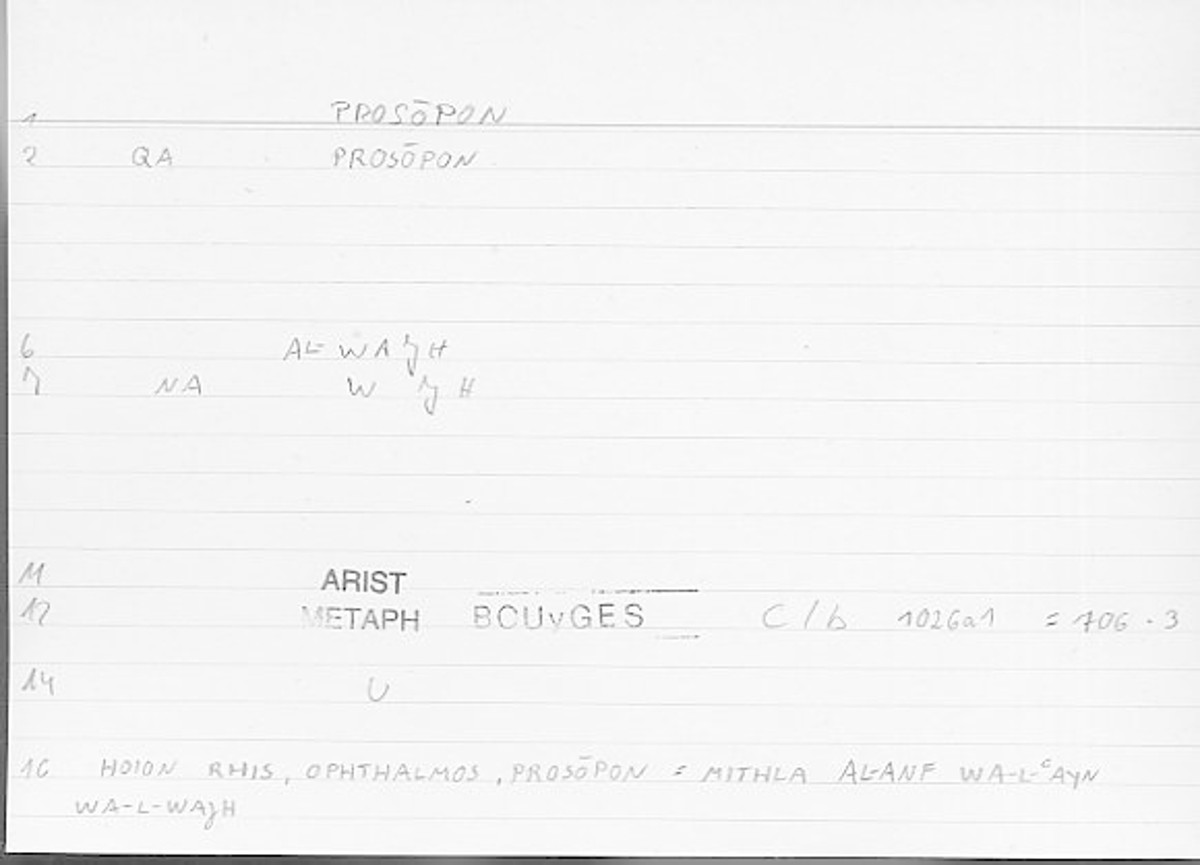 1 PROSŌPON
2 QA PROSŌPON
6 AL-WAJH
7 NA W J H
11 ARIST
12 METAPH BOUyGES C/b 1026a1 = 706.3
14 U
16 HOION RHIS, OPHTHALMOS, PROSŌPON = MITHLA AL-ANF WA-L-ᶜAYN
WA-L-WAJH